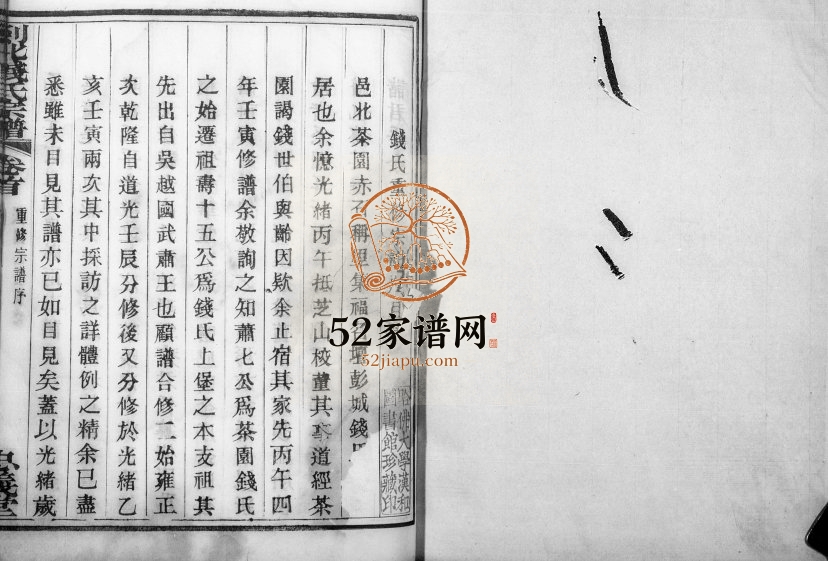 錢氏重修宗譜
邑北茶園赤石稱里集福
彭城錢
居也余憶光緒丙午抵芝山校董其事道經茶
園謁錢世伯與齡因欵余止宿其家先丙午四
年壬寅修譜余敬詢之知蕭七公爲茶園錢氏
之始遷祖壽十五公爲錢氏上堡之本支祖其
先出自吳越國武肅王也顧譜合修二始雍正
次乾隆自道光壬辰分修後又分修於光緒乙
亥壬寅兩次其中採訪之詳體例之精余已盡
悉雖未目見其譜亦已如目見矣蓋以光緒歲
錢氏宗譜
卷首
重修宗譜序
佛大學漢和
圖書館珍藏印
52家谱网
52jiapu.com